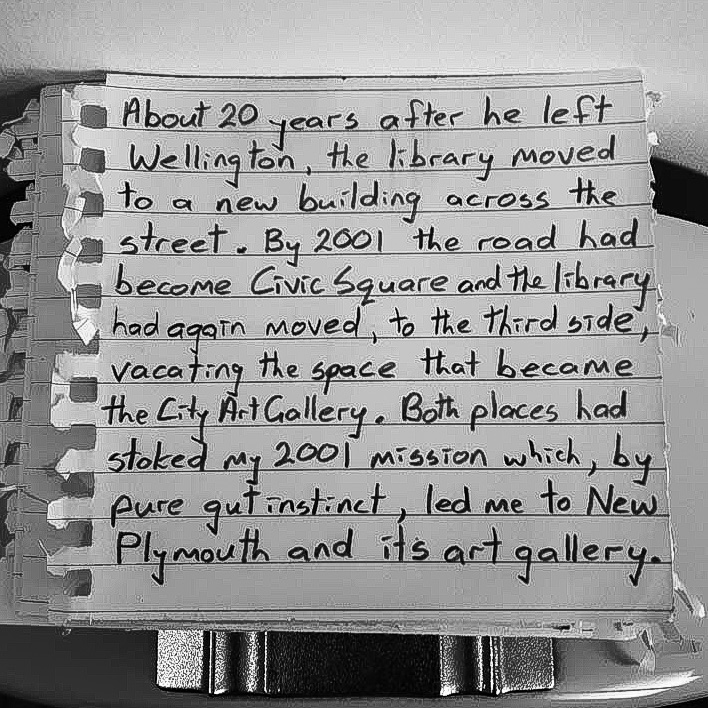 About 20 years after he left
Wellington, the library moved
to a new building across the
street. By 2001 the road had
become Civic Square and the library
had again moved, to the third side,
vacating the space that became
the City Art Gallery. Both places had
stoked my 2001 mission which, by
pure gut instinct, led me to New
Plymouth and its art gallery.